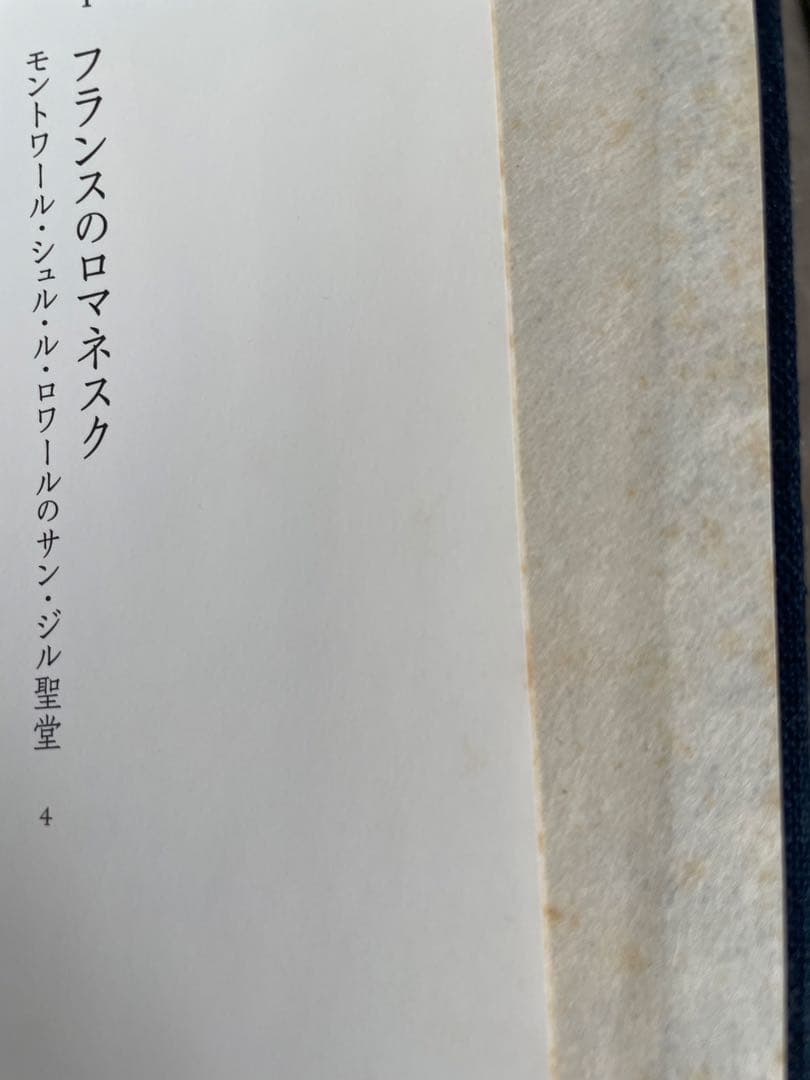 I
フランスのロマネスク
モントワール・シュル・ル・ロワールのサン・ジル聖堂 4